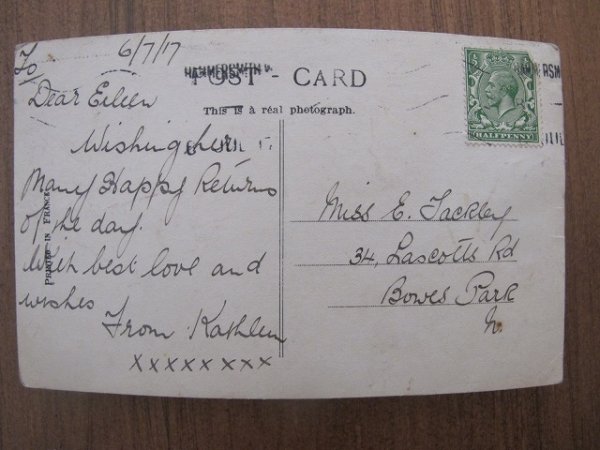 6/7/17
To
HAMMERSMITH
POST - CARD
This is à réal photograph.
HALFPENNY
Dear Eileen
Wishing her
Many Happy Returns
of the day.
With best love and
wishes
From Kathleen
xxxxx xxx
PRINTED IN FRANCE
Miss E. Tackley
34, Lascotts Rd
Bowes Park
N.